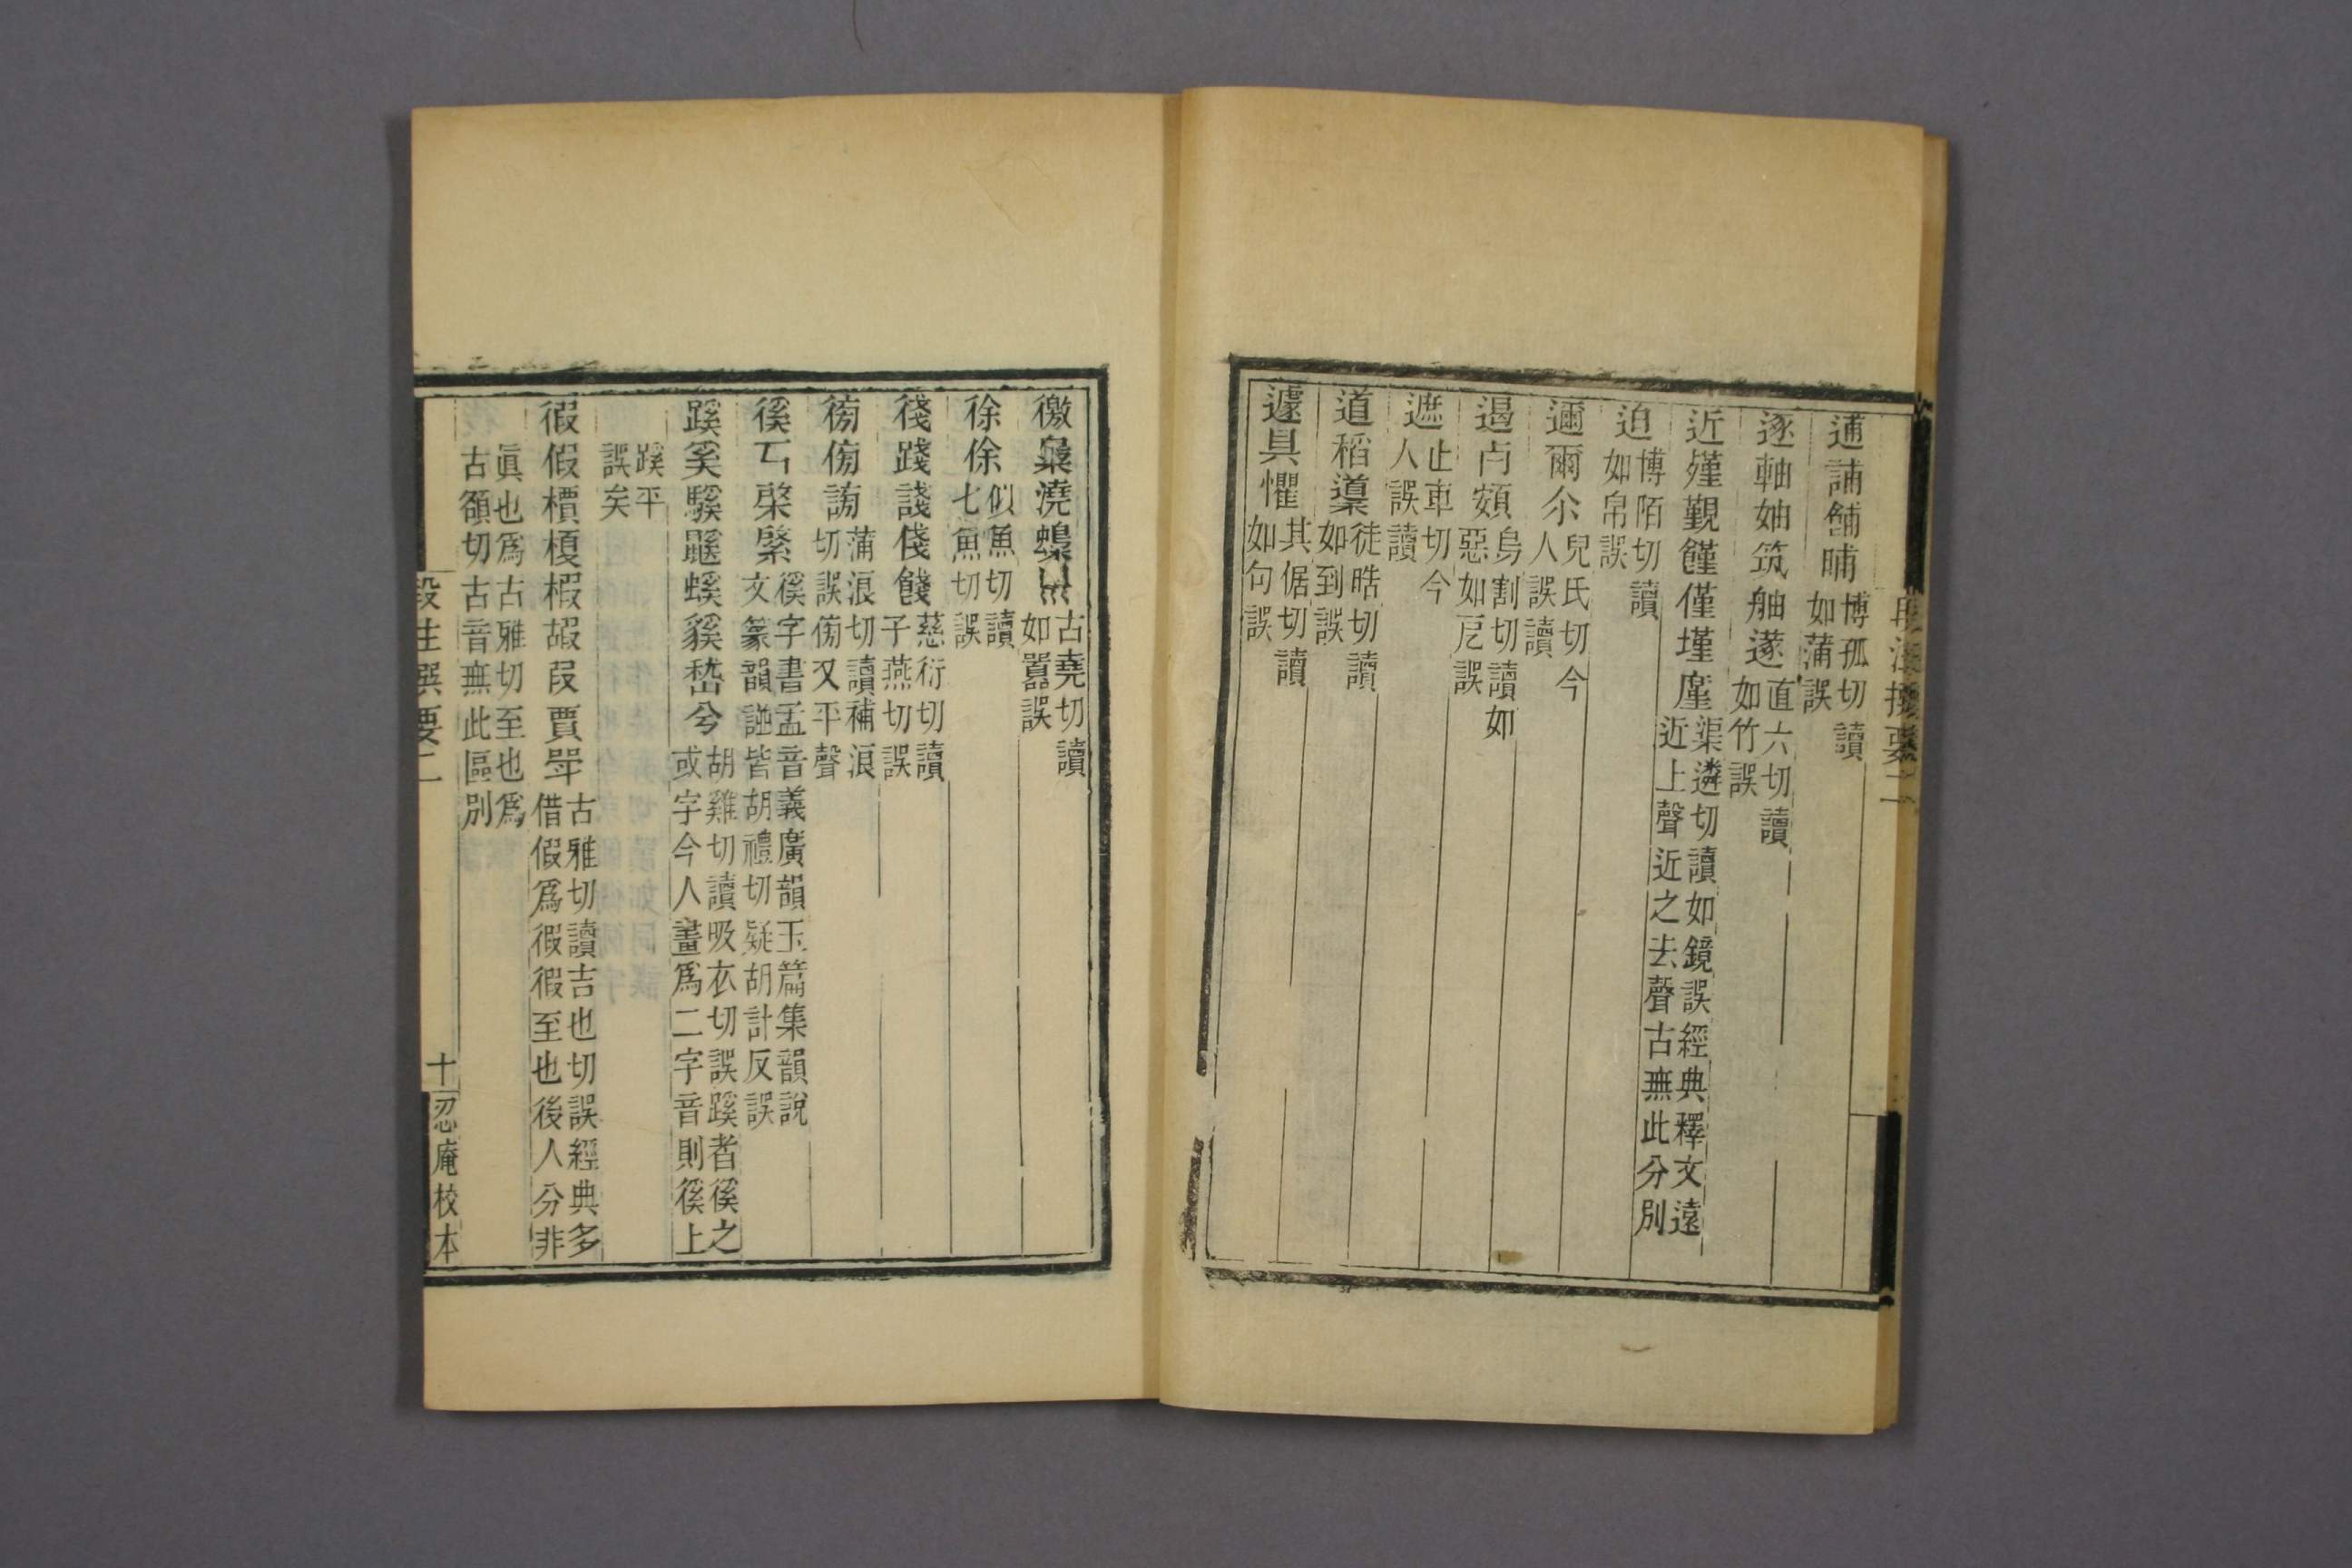 逋誧餔晡博孤切讀如蒲誤
逐軸妯筑舳蓫直六切讀如竹誤
近殣覲饉僅墐廑渠遴切讀如鏡誤經典釋文遠近上聲近之去聲古無此分別
迫博陌切讀如帛誤
邇爾尒兒氏切今人誤讀
遏卢頞烏割切讀如惡如戹誤
遮止車切今人誤讀
道稻䆃徒晧切讀如到誤
遽具懼其倨切讀如句誤
徼梟澆蟂古堯切讀如嚻誤
徐俆似魚切讀七魚切誤
後踐諓俴餞慈衍切讀子燕切誤
徬傍謗蒲浪切讀補浪切誤傍又平聲
徯丂棨綮徯字書孟音義廣韻玉篇集韻說文篆韻諩皆胡禮切疑胡計反誤
蹊奚騱鼷螇豯嵆兮胡雞切讀吸衣切誤蹊者徯之或字今人畫爲二字音則徯上
蹊平誤矣
徦假檟榎椵嘏叚賈斝古雅切讀吉也切誤經典多借假爲徦徦至也後人分非
眞也爲古雅切至也爲古額切古音無此區別
段注撰要二
十
忍庵校本